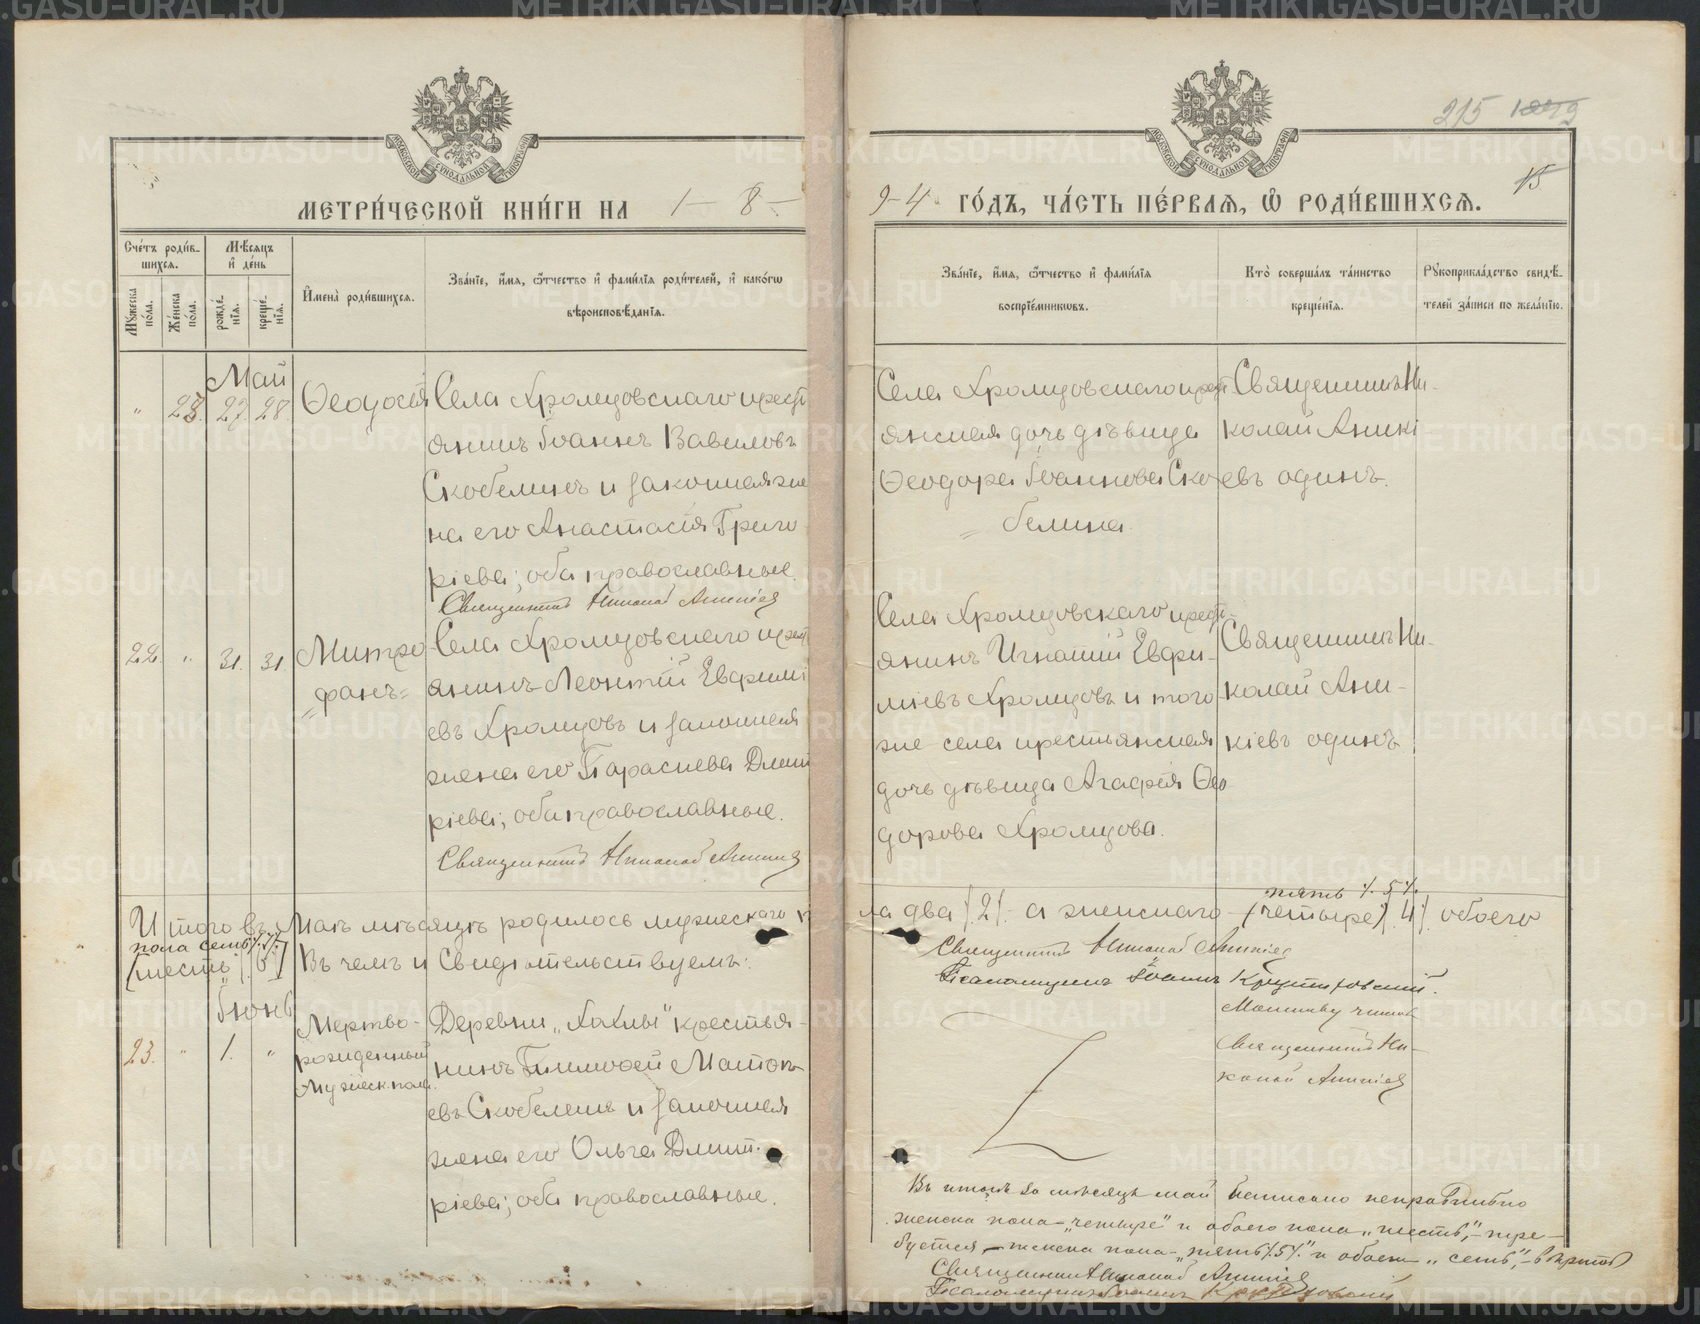 215
15
МЕТРИ́ЧЕСКОЙ КНИ́ГИ НА 1-8-
9-4 ГО́ДЪ, ЧА́СТЬ ПЕ́РВАЯ, Ѡ РОДИ́ВШИХСЯ.
Сче́тъ роди́в-
шихся.
Мѣ́сяцъ
и де́нь
Мꙋжеска по́ла.
Же́нска по́ла.
рожде́-
нія.
креще́-
нія.
Имена̀ роди́вшихся.
Зва́нїе, и́мя, ѻ́тчество и фами́лїя роди́телей, и како́гѡ
вѣроисповѣ́данїя.
Зва́нїе, и́мя, ѻ́тчество и фами́лїя
воспрїе́мниковъ.
Кто̀ соверша́лъ та́инство
креще́нїя.
Рꙋкоприкла́дство свидѣ́-
телей за́писи по жела́нїю.
Май
„ 23. 27. 28. Ѳеодосія
Села Хромцовскаго крест
янинъ Іоаннъ Вавиловъ
Скобелинъ и законная же
на его Анастасія Григо
ріева; оба православные.
Священникъ Николай Аникіев
Села Хромцовскаго крест
янская дочь дѣвица
Ѳеодора Іоаннова Ско
белина.
Священникъ Ни-
колай Аникі
евъ одинъ.
22. „ 31. 31. Митро
фанъ
Села Хромцовскаго крест
янинъ Леонтій Евфимі
евъ Хромцовъ и законная
жена его Параскева Дмит
ріева; оба православные.
Священникъ Николай Аникіев
Села Хромцовскаго крест-
янинъ Игнатій Евфи-
міевъ Хромцовъ и того
же села крестьянская
дочь дѣвица Агафія Ѳео
дорова Хромцова.
Священникъ Ни-
колай Ани-
кіевъ одинъ
Итого въ Маѣ мѣсяцѣ родилось мужескаго п
ла два /.2/. а женскаго - (четыре /.4/.) обоего
пять /.5/.
пола семь /.7/.
(шесть /.6/.) Въ чемъ и Свидѣтельствуемъ:
Священникъ Николай Аникіев
Псаломщикъ Іоаннъ
Іюнь
23. „ 1. „ Мертво-
рожденный
Мужеск. пола.
Деревни „Хохлы" крестья-
нинъ Тимоѳей Матѳ
евъ Скобелинъ и законная
жена его Ольга Дмит.
ріева; оба православные.
Молитву читалъ
Священникъ Ни-
колай Аникіев
Въ итогѣ за мѣсяцъ май написано неправильно
женска пола - „четыре" и обоего пола „шесть", - тре-
буется - женска пола - „пять /.5/." и обоего „семь",
Священникъ Николай Аникіев
Псаломщикъ Іоаннъ